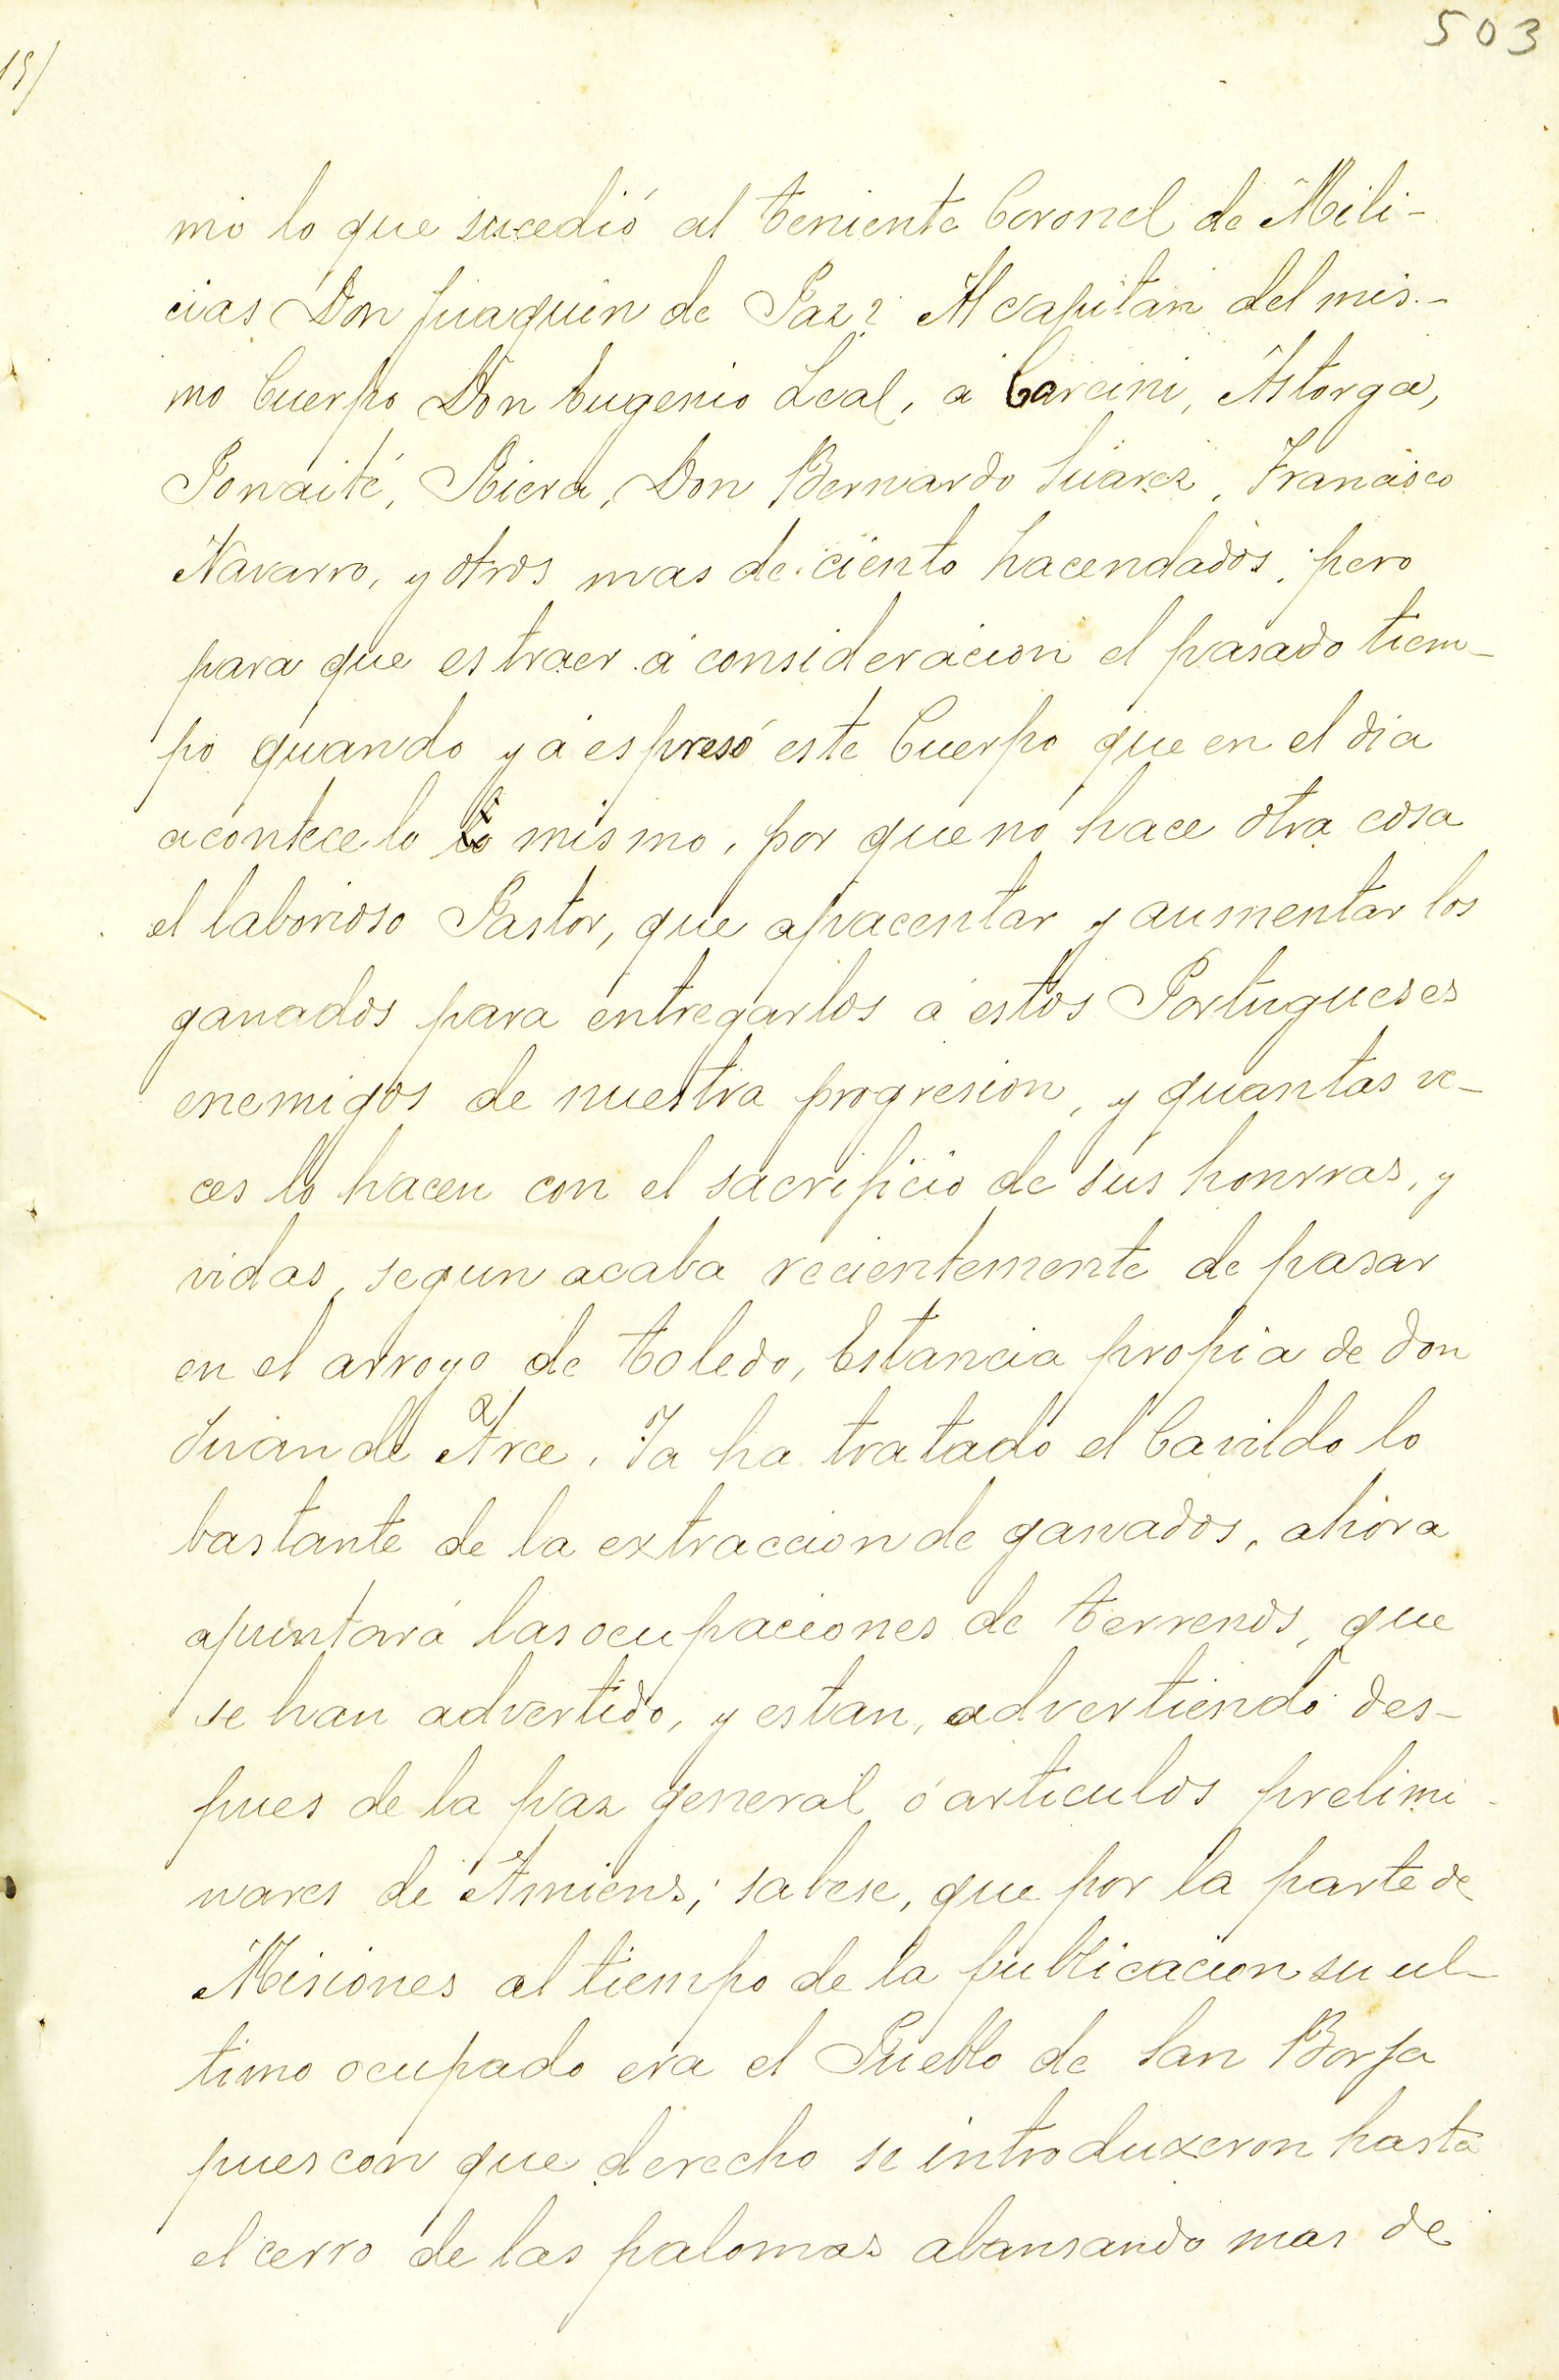 503
15/
mo lo que sucedió al teniente Coronel de Mili-
cias Don Juaquin de Paz? Al capitan del mis-
mo Cuerpo Don Eugenio Leal, á Carcini, Astorga,
Ponaité, Riera, Don Bernardo Suarez, Francisco
Navarro, y otros mas de ciento hacendados; pero
para que es traer á consideracion el pasado tiem-
po quando yá espresó este Cuerpo que en el dia
acontece lo mismo, por que no hace otra cosa
el laborioso Pastor, que apacentar y aumentar los
ganados para entregarlos á estos Portugueses
enemigos de nuestra progresion, y quantas ve-
ces lo hacen con el sacrificio de sus honrras, y
vidas, segun acaba recientemente de pasar
en el arroyo de toledo, Estancia propia de don
Juan de Arce. Ya ha tratado el Cavildo lo
bastante de la extraccion de ganados, ahora
apuntará las ocupaciones de terrenos, que
se han advertido, y estan, advertiendo des-
pues de la paz general ó articulos prelimi-
nares de Amiens; sabese, que por la parte de
Misiones al tiempo de la publicacion su ul-
timo ocupado era el Pueblo de San Borja
pues con que derecho se introduxeron hasta
el cerro de las palomas abansando mas de